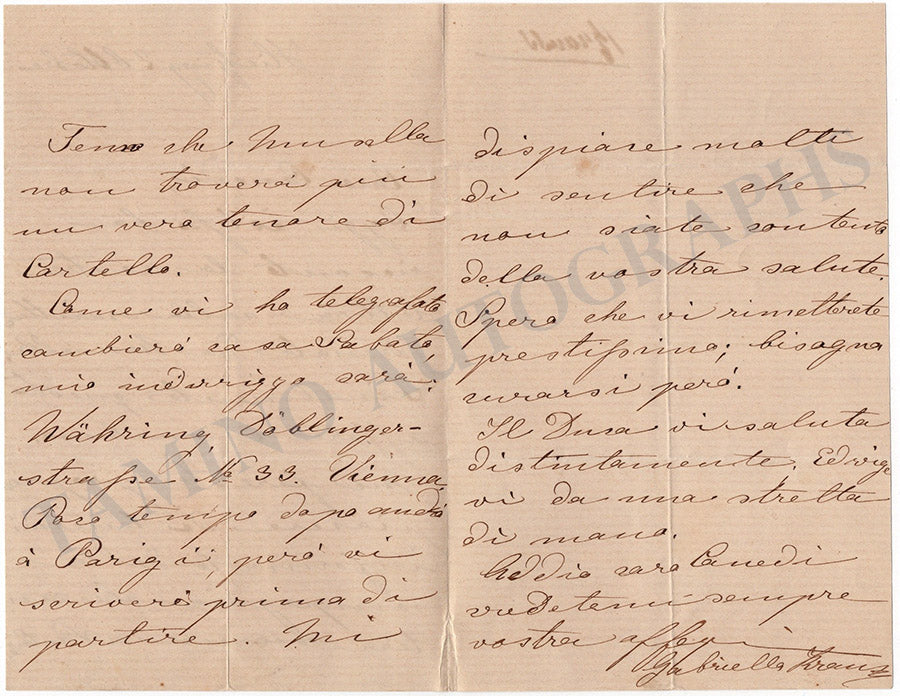 Temo che Musella
non troverá piú
un vero tenore di
Cartello.
Come vi ho telegrafato
cambieró casa Sabato
mio indirizzo sará:
Währing, Döblinger-
straße № 33. Vienna.
Poco tempo dopo andró
á Parigi, peró vi
scriveró prima di
partire. Mi
dispiace molto
di sentire che
non siate contento
della vostra salute.
Spero che vi rimetterete
prestissimo; bisogna
curarsi peró.
Il Duca vi saluta
distintamente. Edvige
vi da una stretta
di mano.
Addio caro Canedi
credetemi sempre
vostra affez
Gabriella Krauss
TAMINO AUTOGRAPHS